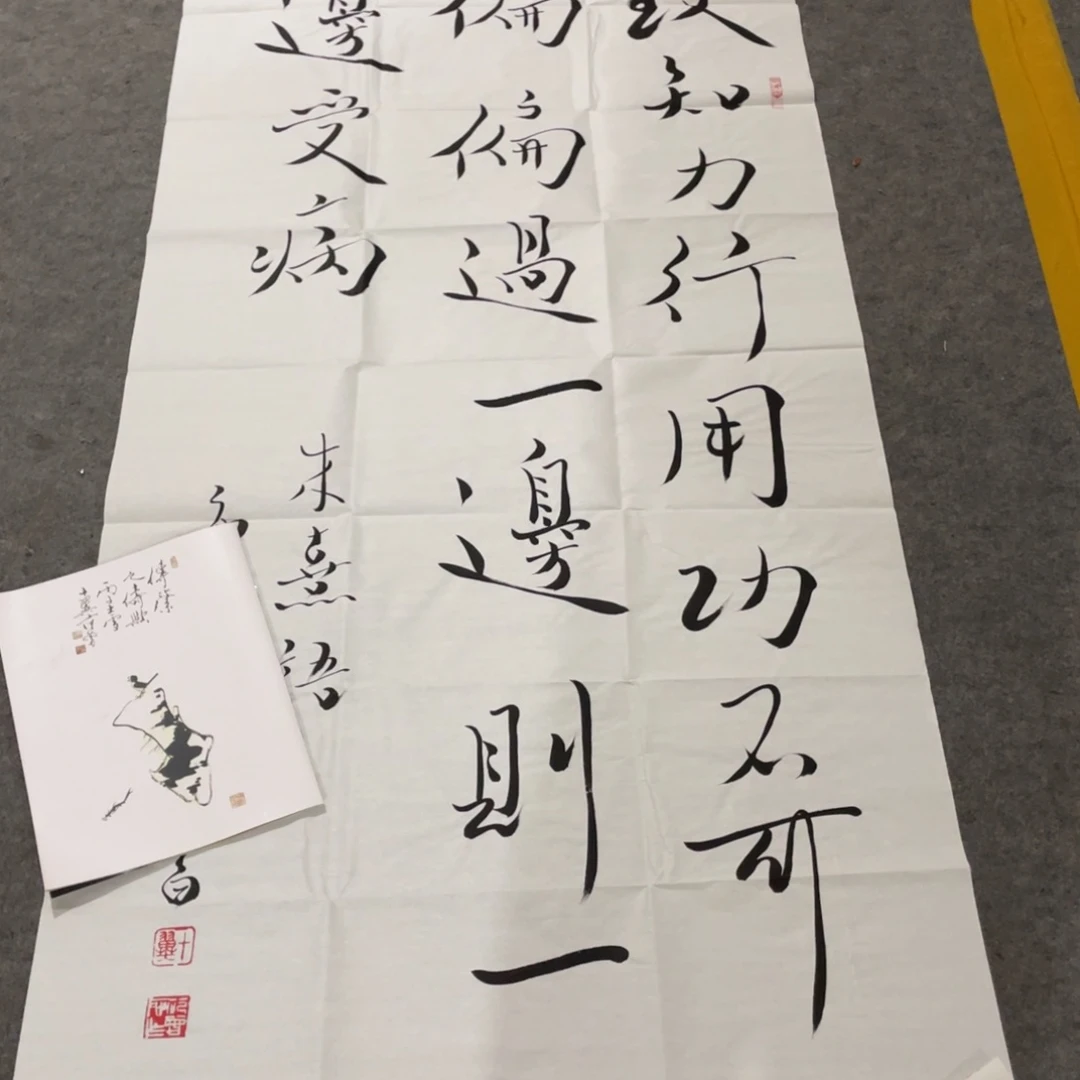 致知力行用功不可
偏偏過一邊則一
邊受病
朱熹語
十翼